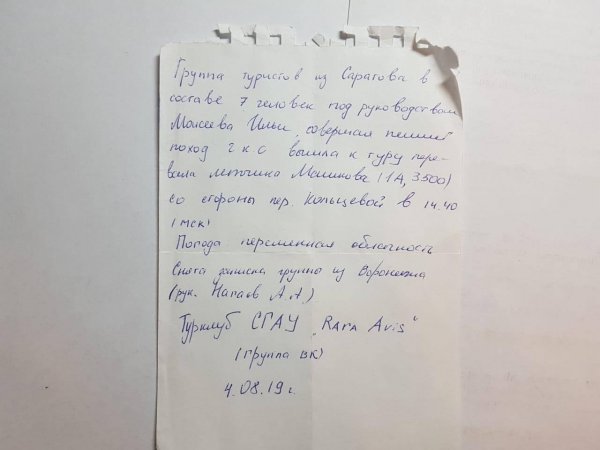 Группа туристов из Саратова в
составе 7 человек под руководством
Моисеева Ильи, совершая пеший
поход 2 к с вышла к туру пере-
вала летчика Мешикова (1А, 3500)
со стороны пер. Кольцевой в 14.40
(мск)
Погода переменная облачность
Снята записка группы из Воронежа
(рук. Напаев А.А)
Турклуб СГАУ "Rara Avis"
(группа ВК)
4.08.19 г.